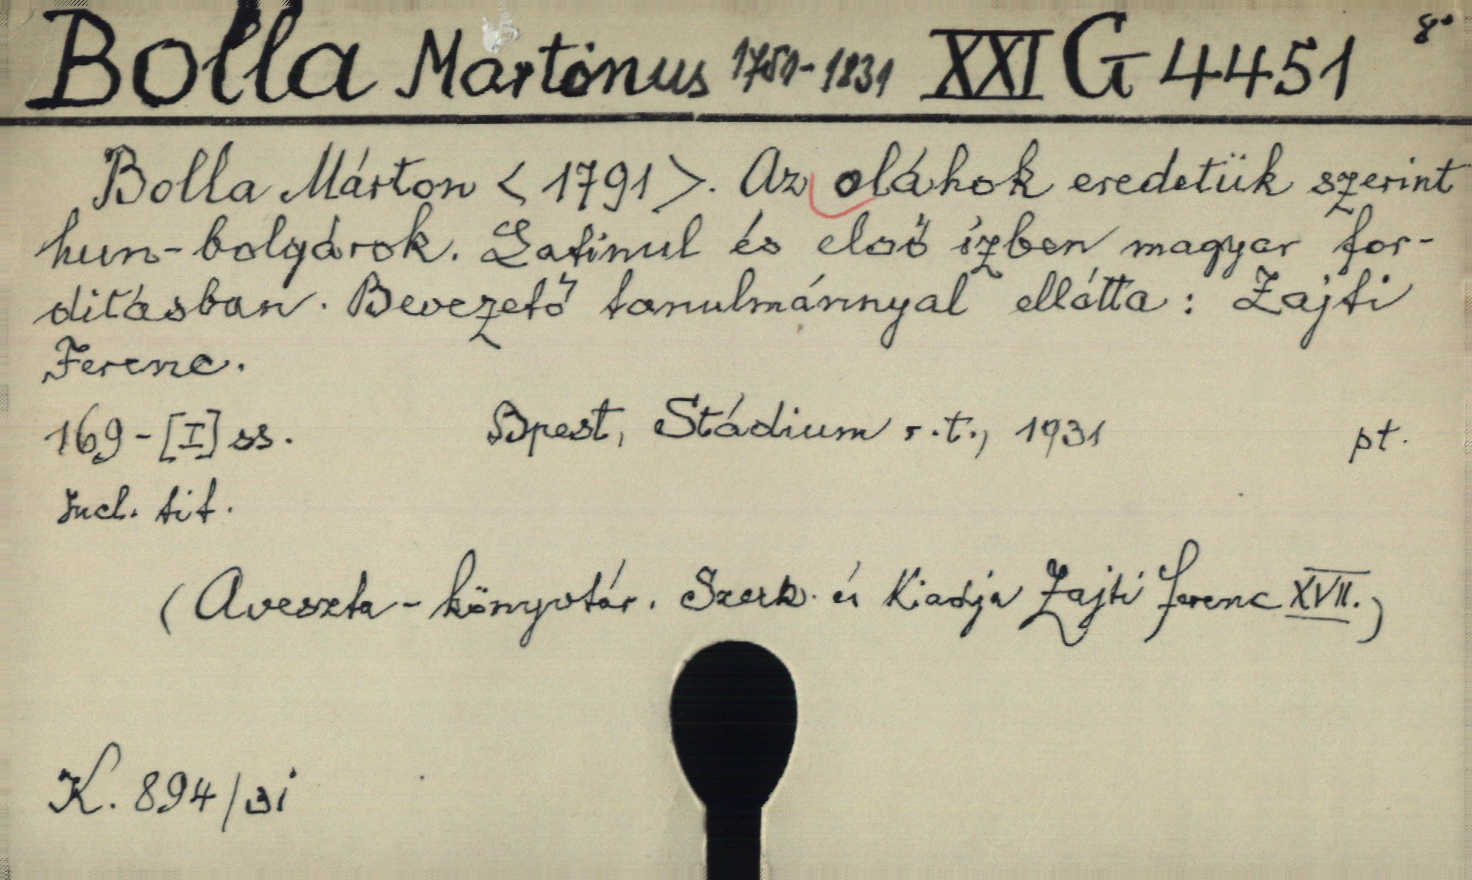 Bolla Martinus 1751-1831 XXI G 4451 8°
Bolla Márton < 1791 >. Az oláhok eredetük szerint
hun-bolgárok. Latinul és első ízben magyar for-
dításban. Bevezető tanulmánnyal ellátta: Zajti
Ferenc.
169-[I] ss. Bpest, Stádium r.t., 1931 pt.
Incl. tit.
(Aveszta-könyvtár. Szerk. és Kiadja Zajti Ferenc XVII.)
K. 894/31